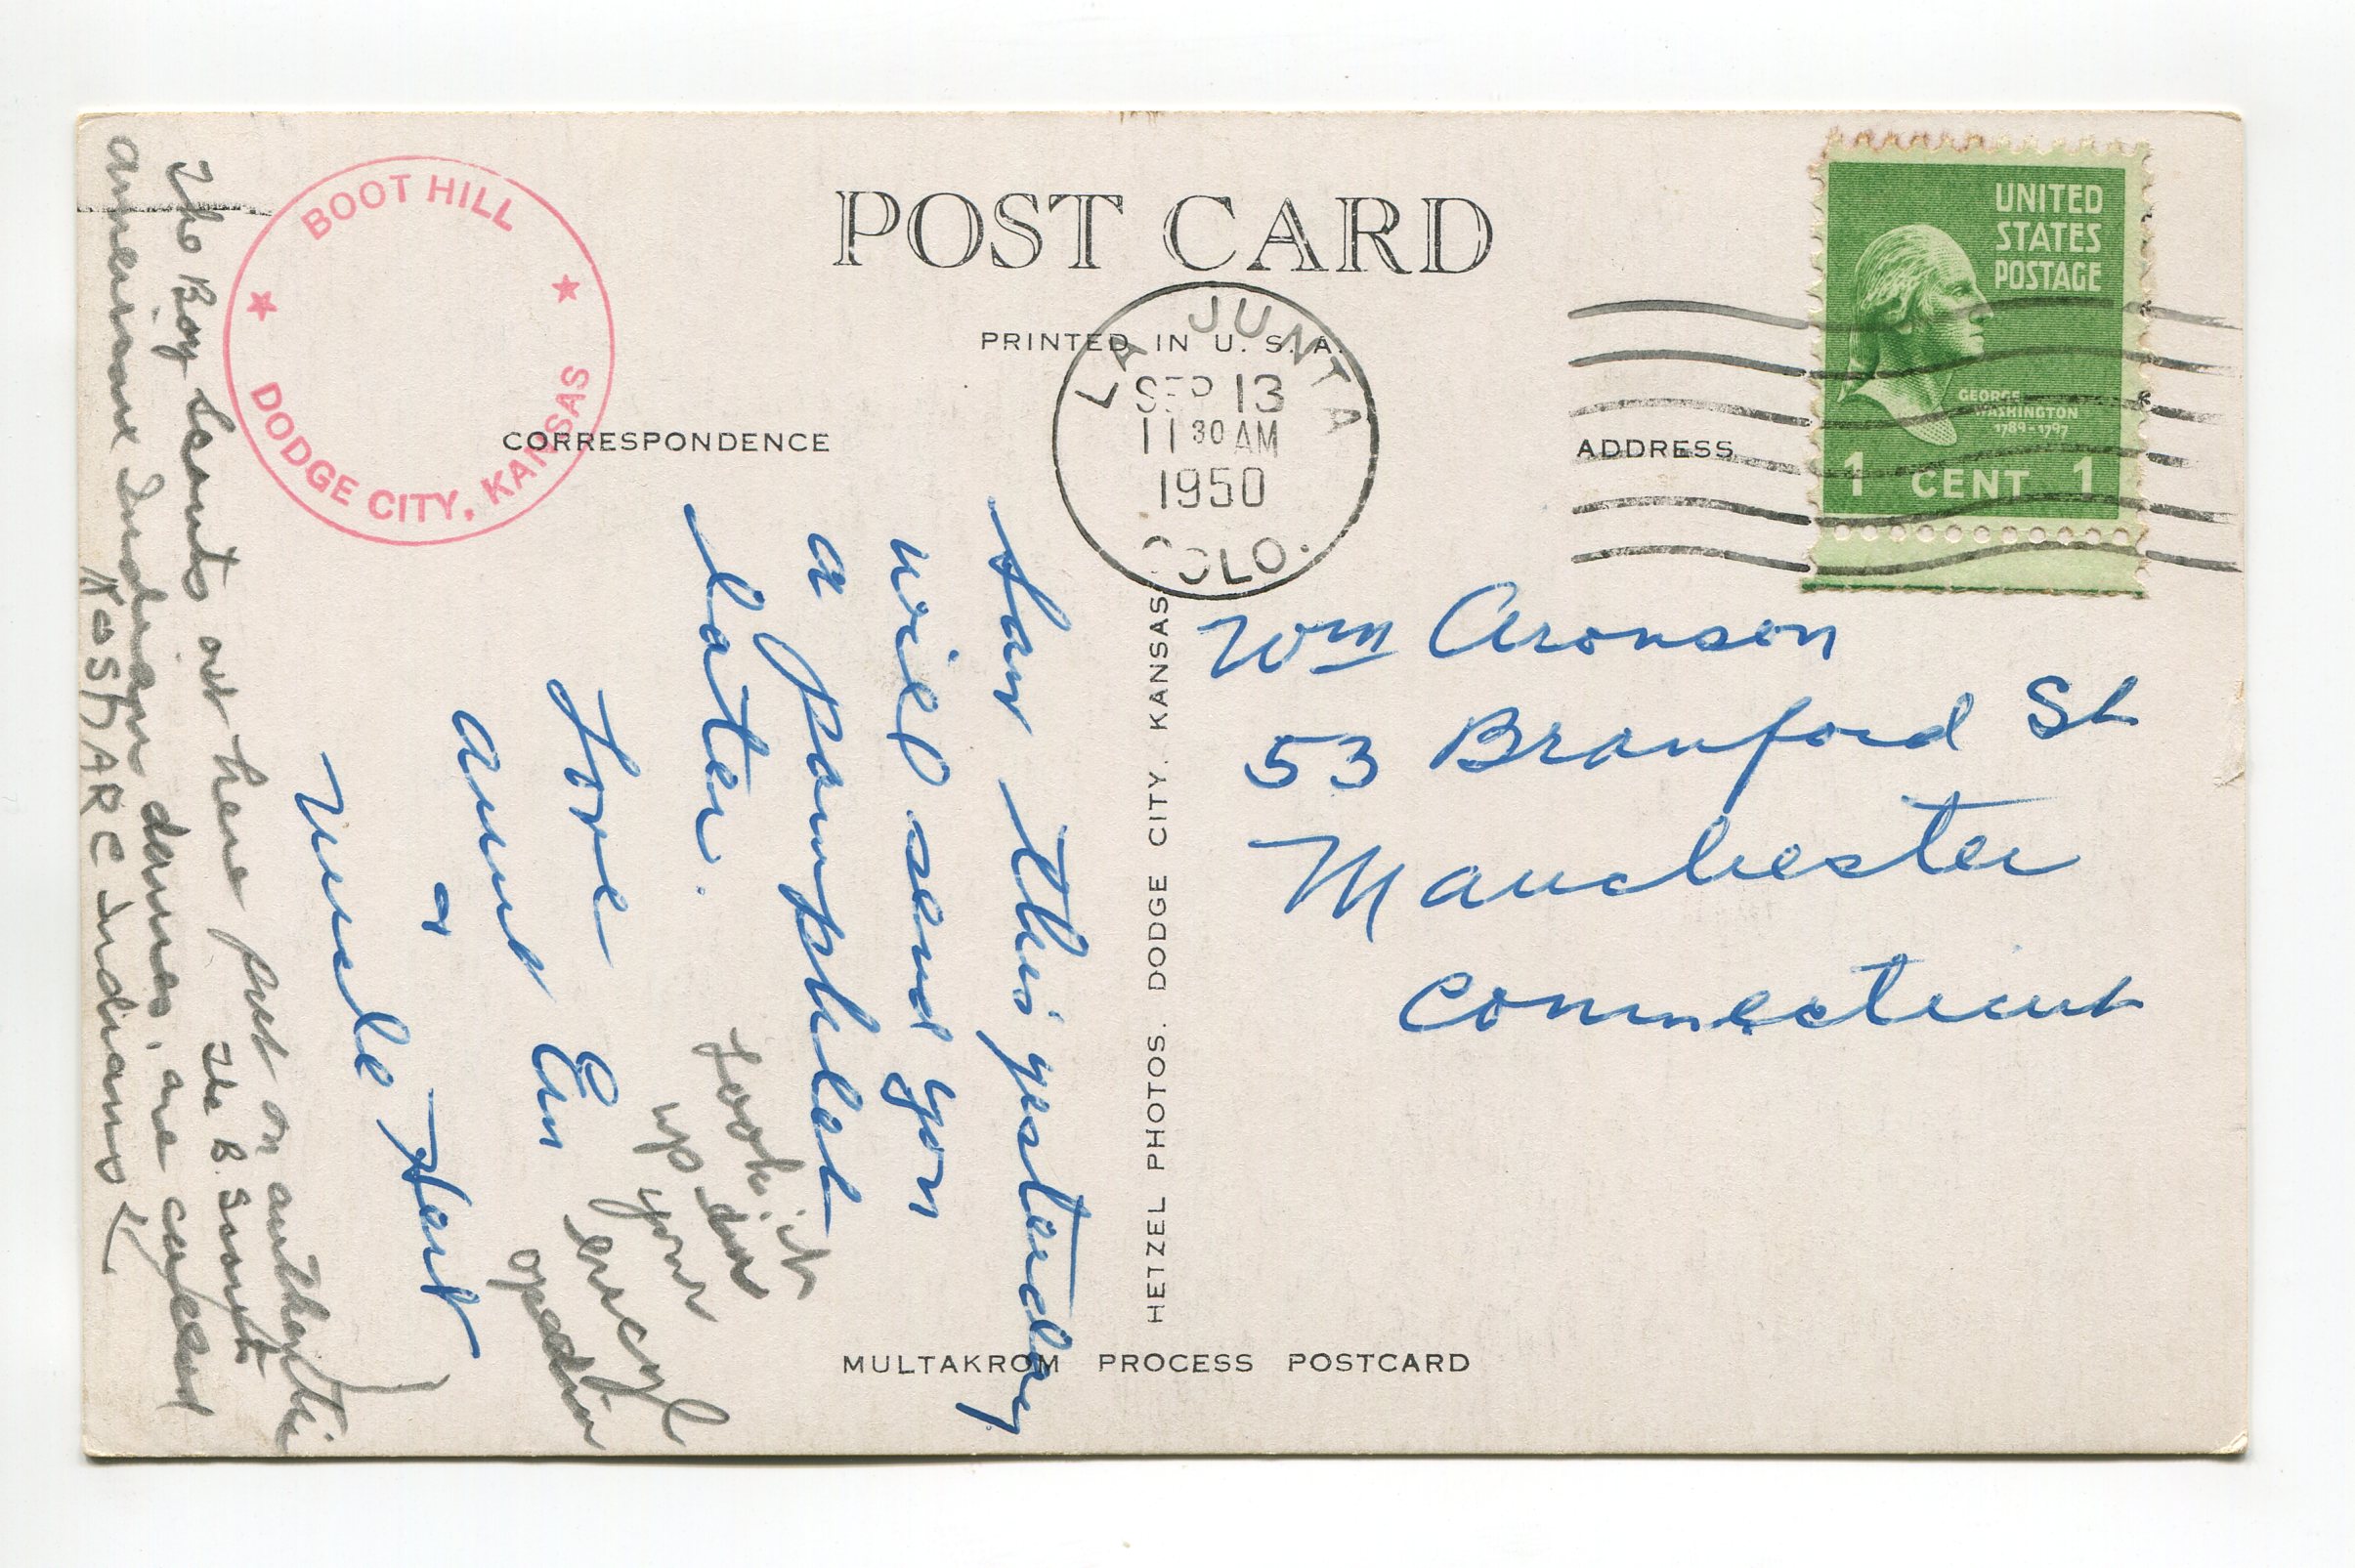 POST CARD
PRINTED IN U. S. A.
CORRESPONDENCE
ADDRESS
BOOT HILL
DODGE CITY, KANSAS
LA JUNTA
SEP 13
11 30 AM
1950
COLO.
UNITED
STATES
POSTAGE
GEORGE
WASHINGTON
1789-1797
1 CENT 1
Wm Aronson
53 Branford St
Manchester
Connecticut
Saw this yesterday
will send you
a pamphlet
later.
Love
Aunt Em
&
Uncle Hart
Look it
up your
encycl
opedia
The Boy Scouts out here put on authentic
The B. Scouts
American Indian dances, are called
KOSHARE Indians
HETZEL PHOTOS. DODGE CITY. KANSAS
MULTAKROM PROCESS POSTCARD